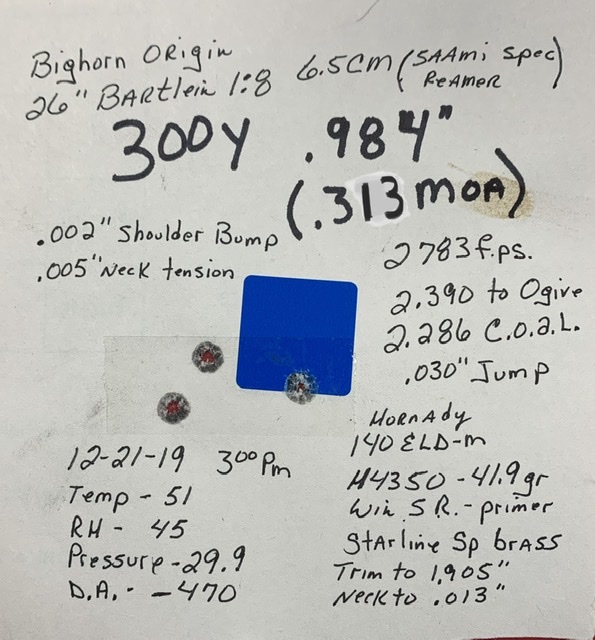 Bighorn Origin
26" Bartlein 1:8 6.5cm (SAAmi Spec)
Reamer
300y .984"
(.313 moa)
.002" Shoulder Bump
.005" Neck tension
2783 f.ps.
2.390 to Ogive
2.286 C.o.a.L.
.030" Jump
Hornady
140 ELD-m
H4350 - 41.9 gr
Win S R. - primer
Starline Sp brass
Trim to 1,905"
Neck to .013"
12-21-19 300 Pm
Temp - 51
RH - 45
Pressure - 29.9
D.A. - -470